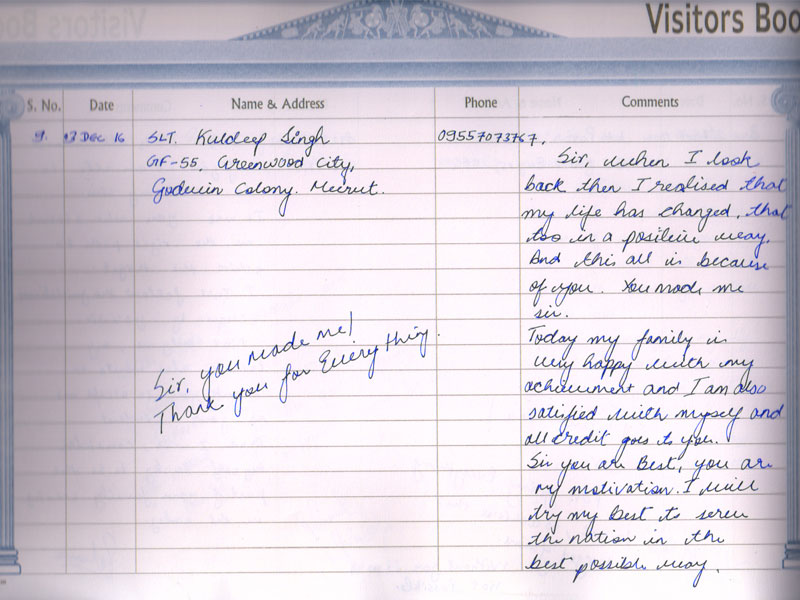 Visitors Boo
S. No.
Date
Name & Address
Phone
Comments
9.
13 DEC 16
SLT. Kuldeep Singh
GF-55, Greenwood City,
Godwin Colony. Meirut.
09557073767.
Sir, when I look
back then I realised that
my life has changed, that
too in a positive way.
And this all is because
of you. You made me
sir.
Today my family is
very happy with my
achievement and I am also
satisfied with myself and
all credit goes to you.
Sir you are Best, you are
my motivation. I will
try my Best to serve
the nation in the
best possible way.
Sir, you made me!
Thank you for Everything.